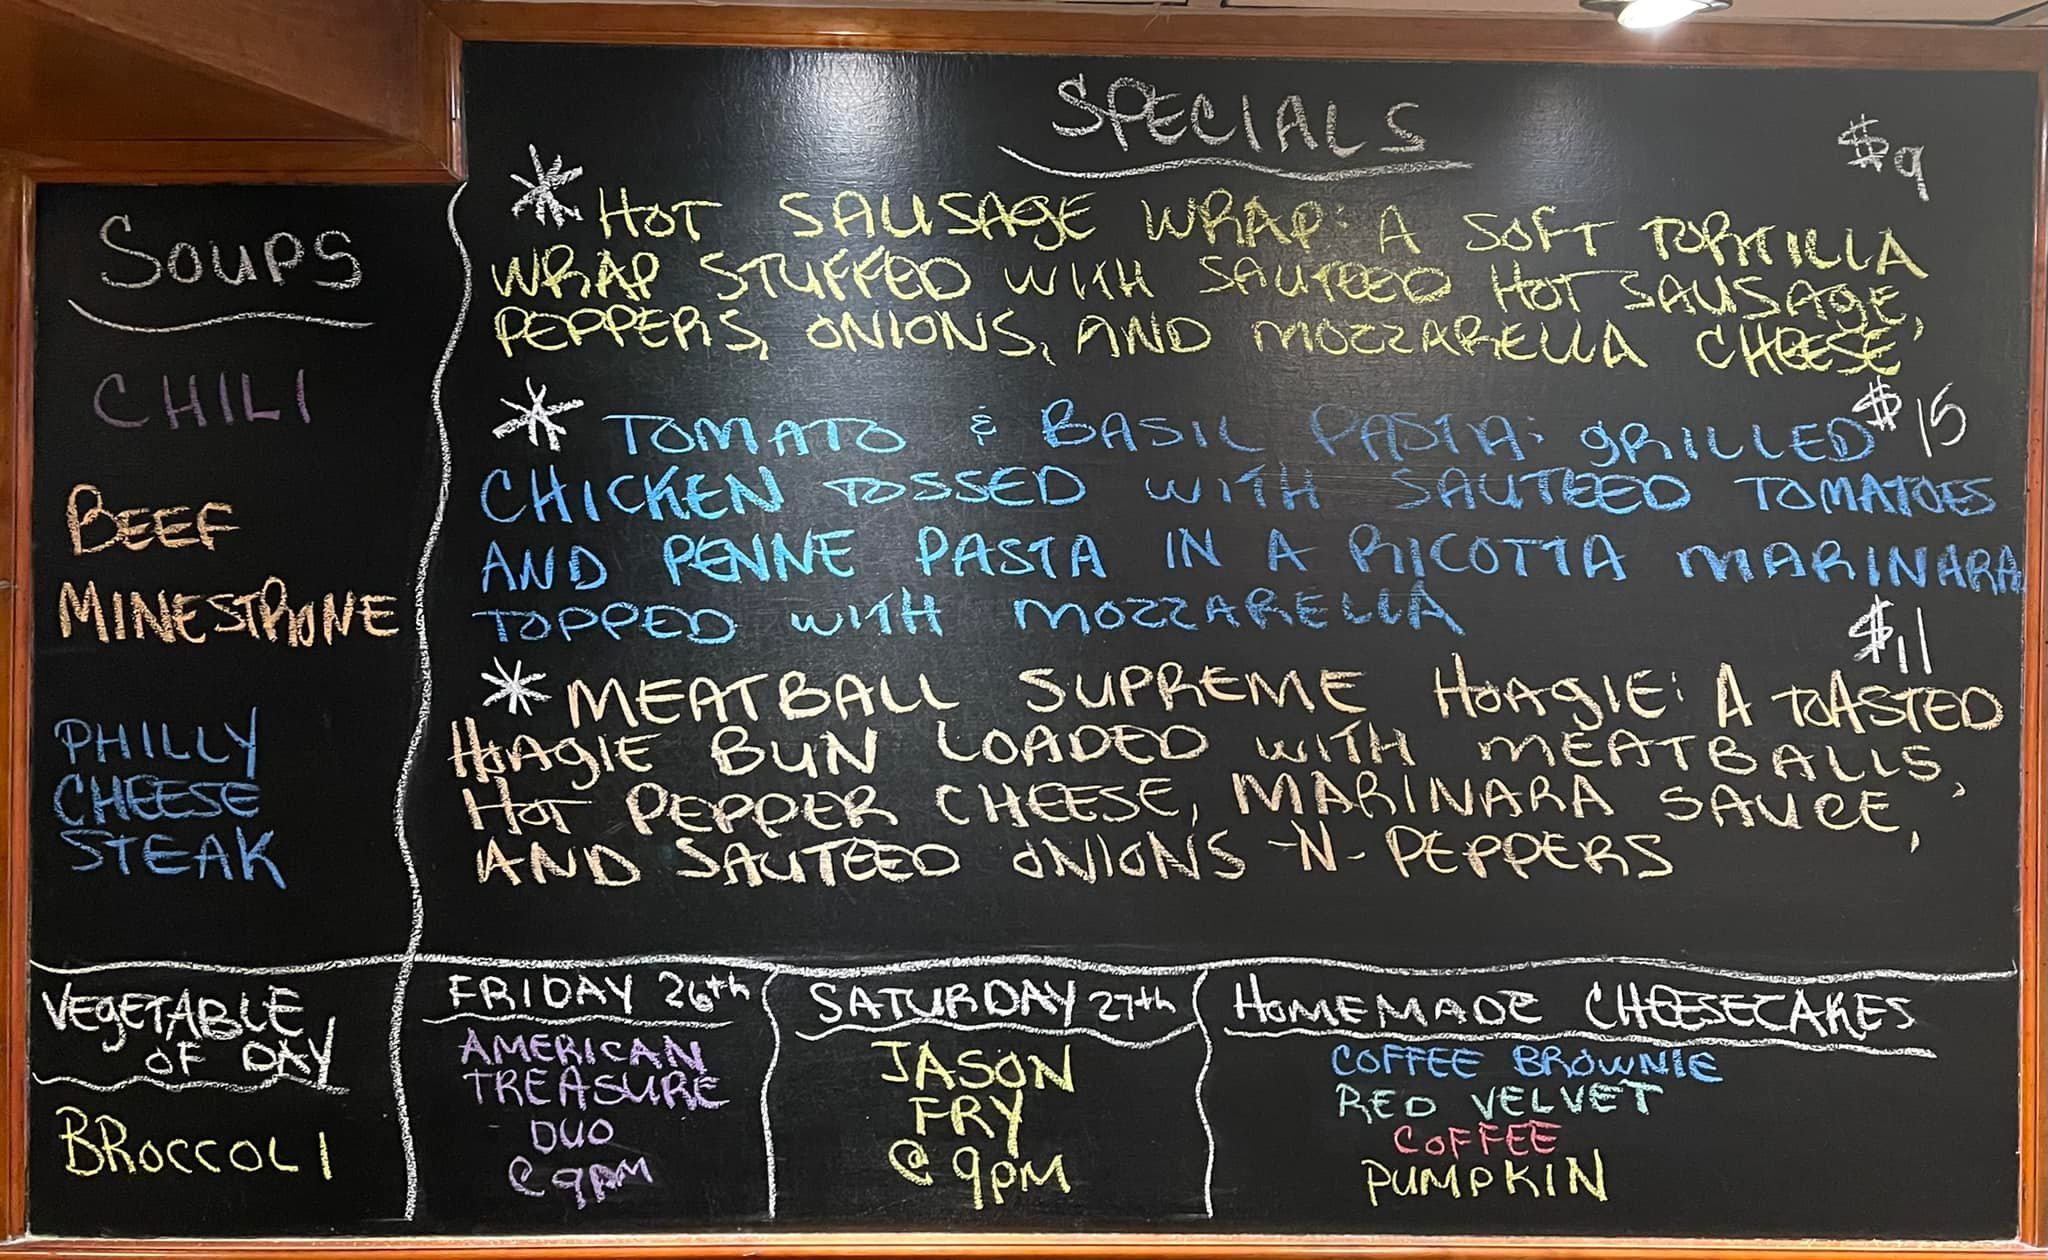 SPECIALS
$9
* HOT SAUSAGE WRAP: A SOFT TORTILLA
WRAP STUFFED WITH SAUTEED HOT SAUSAGE,
PEPPERS, ONIONS, AND MOZZARELLA CHEESE
$15
* TOMATO & BASIL PASTA: GRILLED
CHICKEN TOSSED WITH SAUTEED TOMATOES
AND PENNE PASTA IN A RICOTTA MARINARA
TOPPED WITH MOZZARELLA
$11
* MEATBALL SUPREME HOAGIE: A TOASTED
HOAGIE BUN LOADED WITH MEATBALLS,
HOT PEPPER CHEESE, MARINARA SAUCE,
AND SAUTEED ONIONS -N- PEPPERS
SOUPS
CHILI
BEEF
MINESTRONE
PHILLY
CHEESE
STEAK
VEGETABLE
OF DAY
BROCCOLI
FRIDAY 26th
AMERICAN
TREASURE
DUO
@ 9PM
SATURDAY 27th
JASON
FRY
@ 9PM
HOMEMADE CHEESECAKES
COFFEE BROWNIE
RED VELVET
COFFEE
PUMPKIN